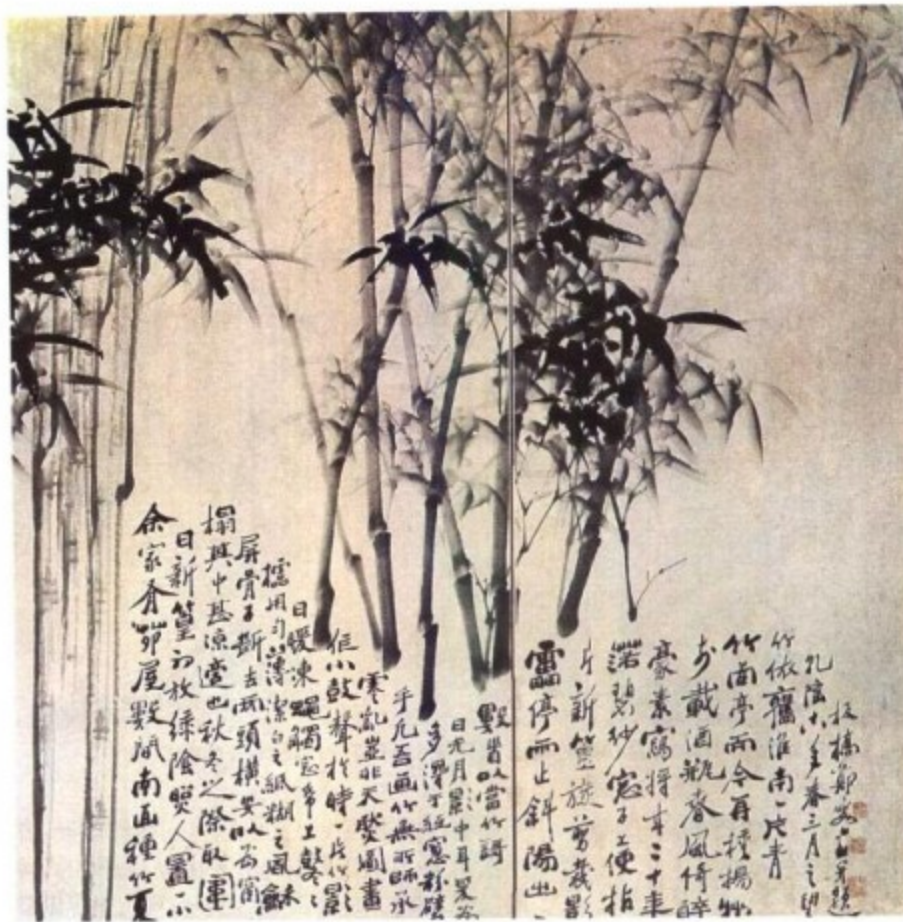 余家有茆屋數間南面種竹夏
日新篁初放綠陰照人置一小
榻其中甚涼適也秋冬之際取圍
屏骨子斷去兩頭橫安以為窗
櫺用勻薄潔白之紙糊之風和
日暖凍蠅觸窗帋上鼕鼕
作小鼓聲於時一片竹影
零亂豈非天然圖畫
乎凡吾画竹無所師承
多得于紙窗粉壁
日光月影中耳
以當竹詩
雷停雨止斜陽出一
片新篁旋剪裁影
落碧紗窗子上便拈
豪素寫將來二十年
前載酒瓶春風倚醉
竹西亭而今再種揚州
竹依舊淮南一片青
乾隆十八年春三月之
板橋鄭燮画并題